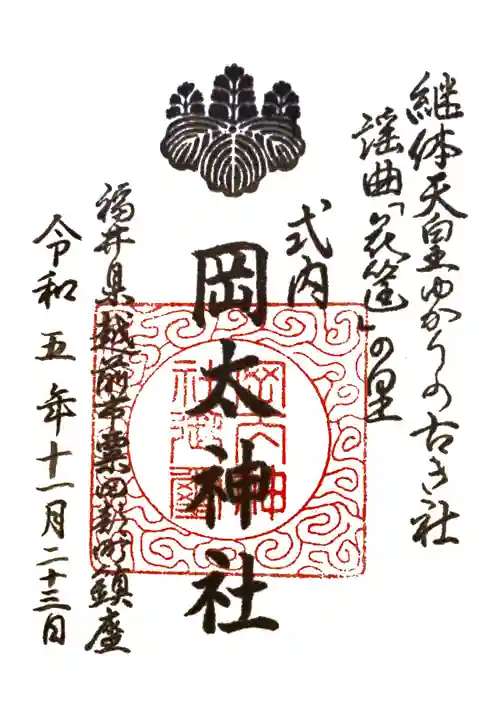 継体天皇ゆかりの古き社
謡曲「花筐」の里
式内
岡太神社
福井県越前市粟田部町鎮座
令和五年十一月二十三日